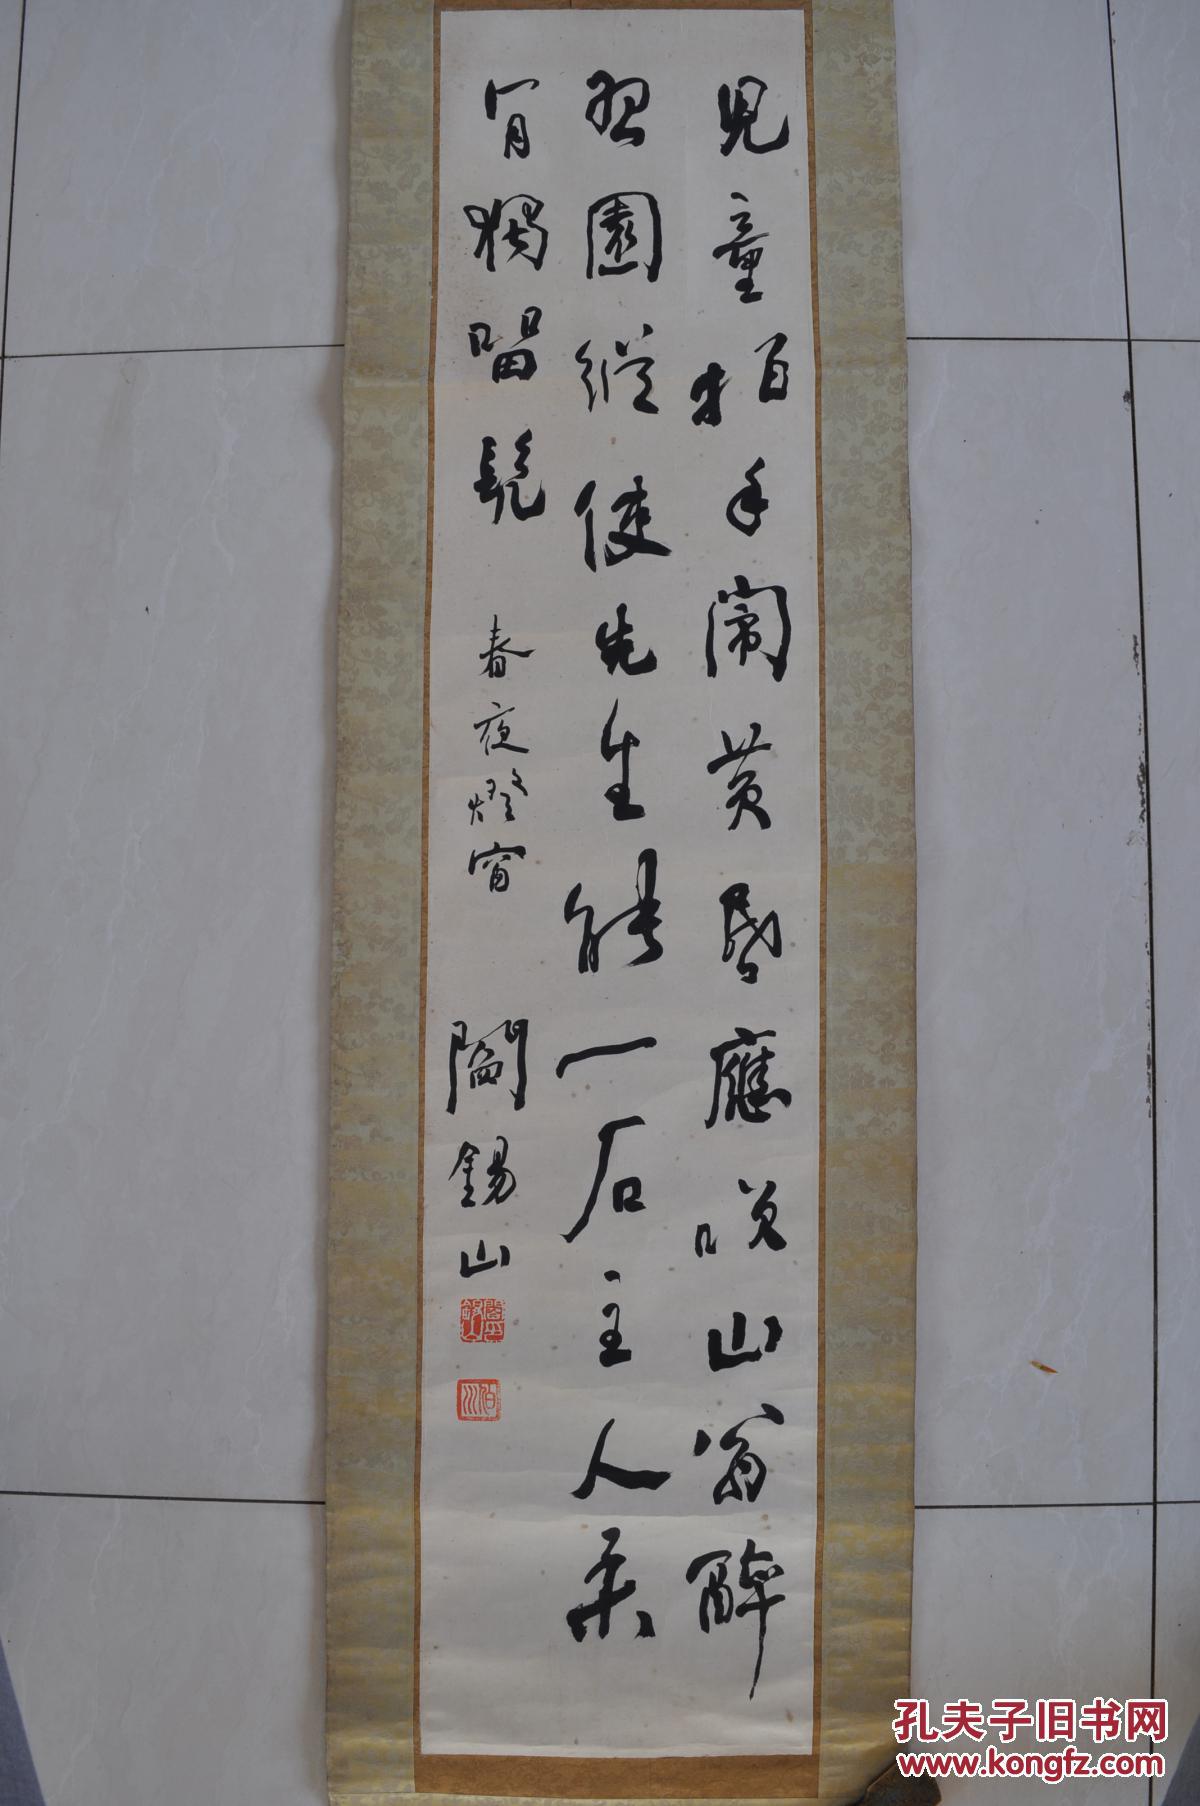 兒童拍手鬧黃昏應咲山翁醉
習園縱使先生能一石主人未
肯獨留髡 春夜燈窗 閻錫山
伯川
孔夫子旧书网
www.kongfz.com